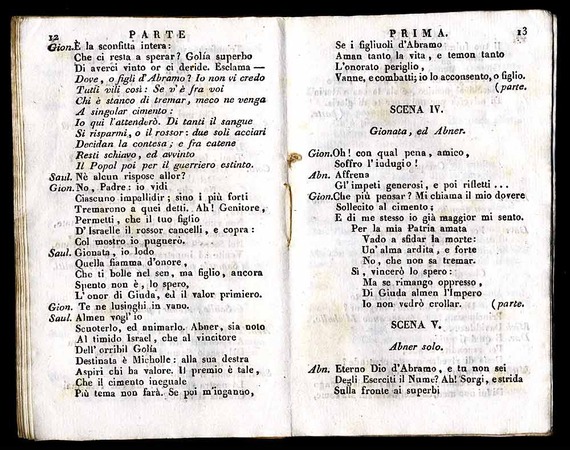 12 PARTE
Gion. È la sconfitta intera:
Che ci resta a sperar? Golía superbo
Di averci vinto or ci deride. Esclama —
Dove, o figli d'Abramo? Io non vi credo
Tutti vili così: Se v'è fra voi
Chi è stanco di tremar, meco ne venga
A singolar cimento:
Io quì l'attenderò. Di tanti il sangue
Si risparmi, o il rossor: due soli acciari
Decidan la contesa; e fra catene
Resti schiavo, ed avvinto
Il Popol poi per il guerriero estinto.
Saul. Nè alcun rispose allor?
Gion. No, Padre: io vidi
Ciascuno impallidir; sino i più forti
Tremarono a quei detti. Ah! Genitore,
Permetti, che il tuo figlio
D'Israele il rossor cancelli, e copra:
Col mostro io pugnerò.
Saul. Gionata, io lodo
Quella fiamma d'onore,
Che ti bolle nel sen, ma figlio, ancora
Spento non è, lo spero,
L'onor di Giuda, ed il valor primiero.
Gion. Te ne lusinghi in vano.
Saul. Almen vogl'io
Scuoterlo, ed animarlo. Abner, sia noto
Al timido Israel, che al vincitore
Dell'orribil Golía
Destinata è Micholle: alla sua destra
Aspiri chi ha valore. Il premio è tale,
Che il cimento ineguale
Più tema non farà. Se poi m'inganno,
PRIMA. 13
Se i figliuoli d'Abramo
Aman tanto la vita, e temon tanto
L'onorato periglio,
Vanne, e combatti; io lo acconsento, o figlio.
(parte.
SCENA IV.
Gionata, ed Abner.
Gion. Oh! con qual pena, amico,
Soffro l'indugio!
Abn. Affrena
Gl'impeti generosi, e poi rifletti ...
Gion. Che più pensar? Mi chiama il mio dovere
Sollecito al cimento;
E di me stesso io già maggior mi sento.
Per la mia Patria amata
Vado a sfidar la morte:
Un'alma ardita, e forte
No, che non sa tremar.
Sì, vincerò lo spero:
Ma se rimango oppresso,
Di Giuda almen l'Impero
Io non vedrò crollar. (parte.
SCENA V.
Abner solo.
Abn. Eterno Dio d'Abramo, e tu non sei
Degli Eserciti il Nume? Ah! Sorgi, e strida
Sulla fronte ai superbi